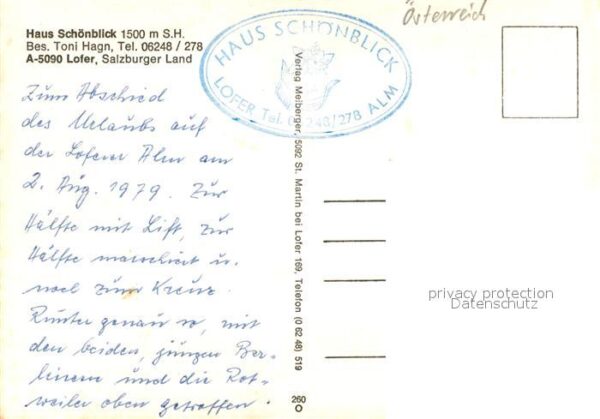 Haus Schönblick 1500 m S.H.
Bes. Toni Hagn, Tel. 06248 / 278
A-5090 Lofer, Salzburger Land
Zum Abschied
des Urlaubs auf
der Loferer Alm am
2. Aug. 1979. Zur
Hälfte mit Lift, zur
Hälfte marschiert u.
noch zum Kreuz.
Runter genau so, mit
den beiden, jungen Ber-
linern und die Rot-
weiler oben getroffen.
HAUS SCHÖNBLICK
LOFER Tel. 06248/278 ALM
Österreich
Verlag Meiberger, 5092 St. Martin bei Lofer 169, Telefon (0 62 48) 519
260
O
privacy protection
Datenschutz